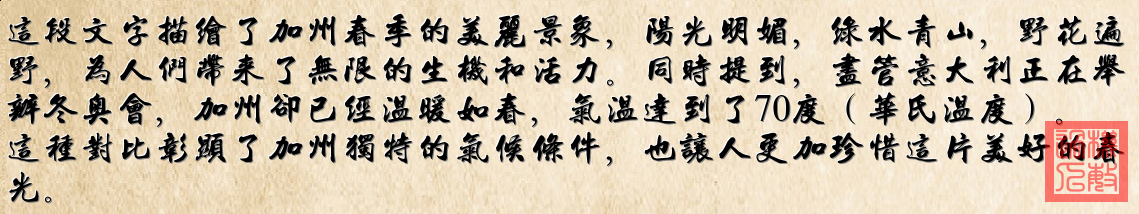 這段文字描繪了加州春季的美麗景象，陽光明媚，綠水青山，野花遍
野，為人們帶來了無限的生機和活力。同時提到，盡管意大利正在舉
辦冬奧會，加州卻已經溫暖如春，氣溫達到了70度（華氏溫度）。
這種對比彰顯了加州獨特的氣候條件，也讓人更加珍惜這片美好的春
光。